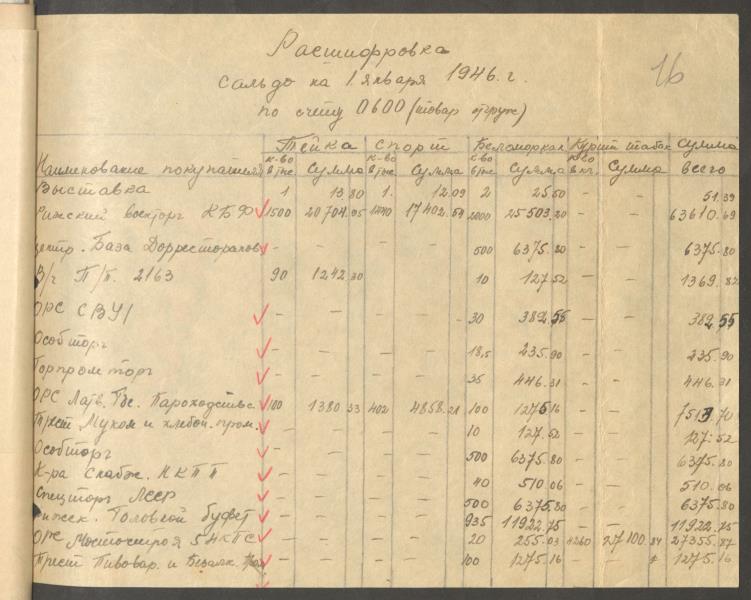 16
Расшифровка
сальдо на 1 января 1946. г.
по счету 0600 (товар отгруж)
Тейка спорт Беломоркан Курит табак Сумма
Наименование покупателя к-во в тыс Сумма к-во в тыс Сумма к-во в тыс Сумма к-во в кг. Сумма всего
Выставка 1 13.80 1. 12.09 2 25.50 51.39
Рижский военторг КБФ 1500 20704.95 17402.54 2000 25503.20 63610.69
Центр. База Дорресторанов - - - - 500 6375.80 - - 6375.80
В/ч П/П. 2163 90 1242.30 10 127.52 - - 1369.82
ОРС СВУ - - - - 30 382.55 - - 382.55
Особторг - - - - 18,5 235.90 - - 235.90
Торпромторг - - - - 35 446.31 - - 446.31
ОРС Латв. Гос. Пароходства 100 1380.33 402 4858.21 100 1275.16 - - 7513.70
Трест Муком и хлебоп. пром. - - - - 10 127.52 - - 127.52
Особторг - - - - 500 6375.80 - - 6375.80
К-ра Снабж. НКПП - - - - 40 510.06 - - 510.06
Спецторг ЛССР - - - - 500 6375.80 - - 6375.80
Головной буфет - - - - 935 11922.75 - - 11922.75
ОРС Мостостроя 5 НКПС - - - - 20 255.03 4260 27100.84 27355.87
Трест Пивовар. и Безалк. - - - - 100 1275.16 - 1275.16